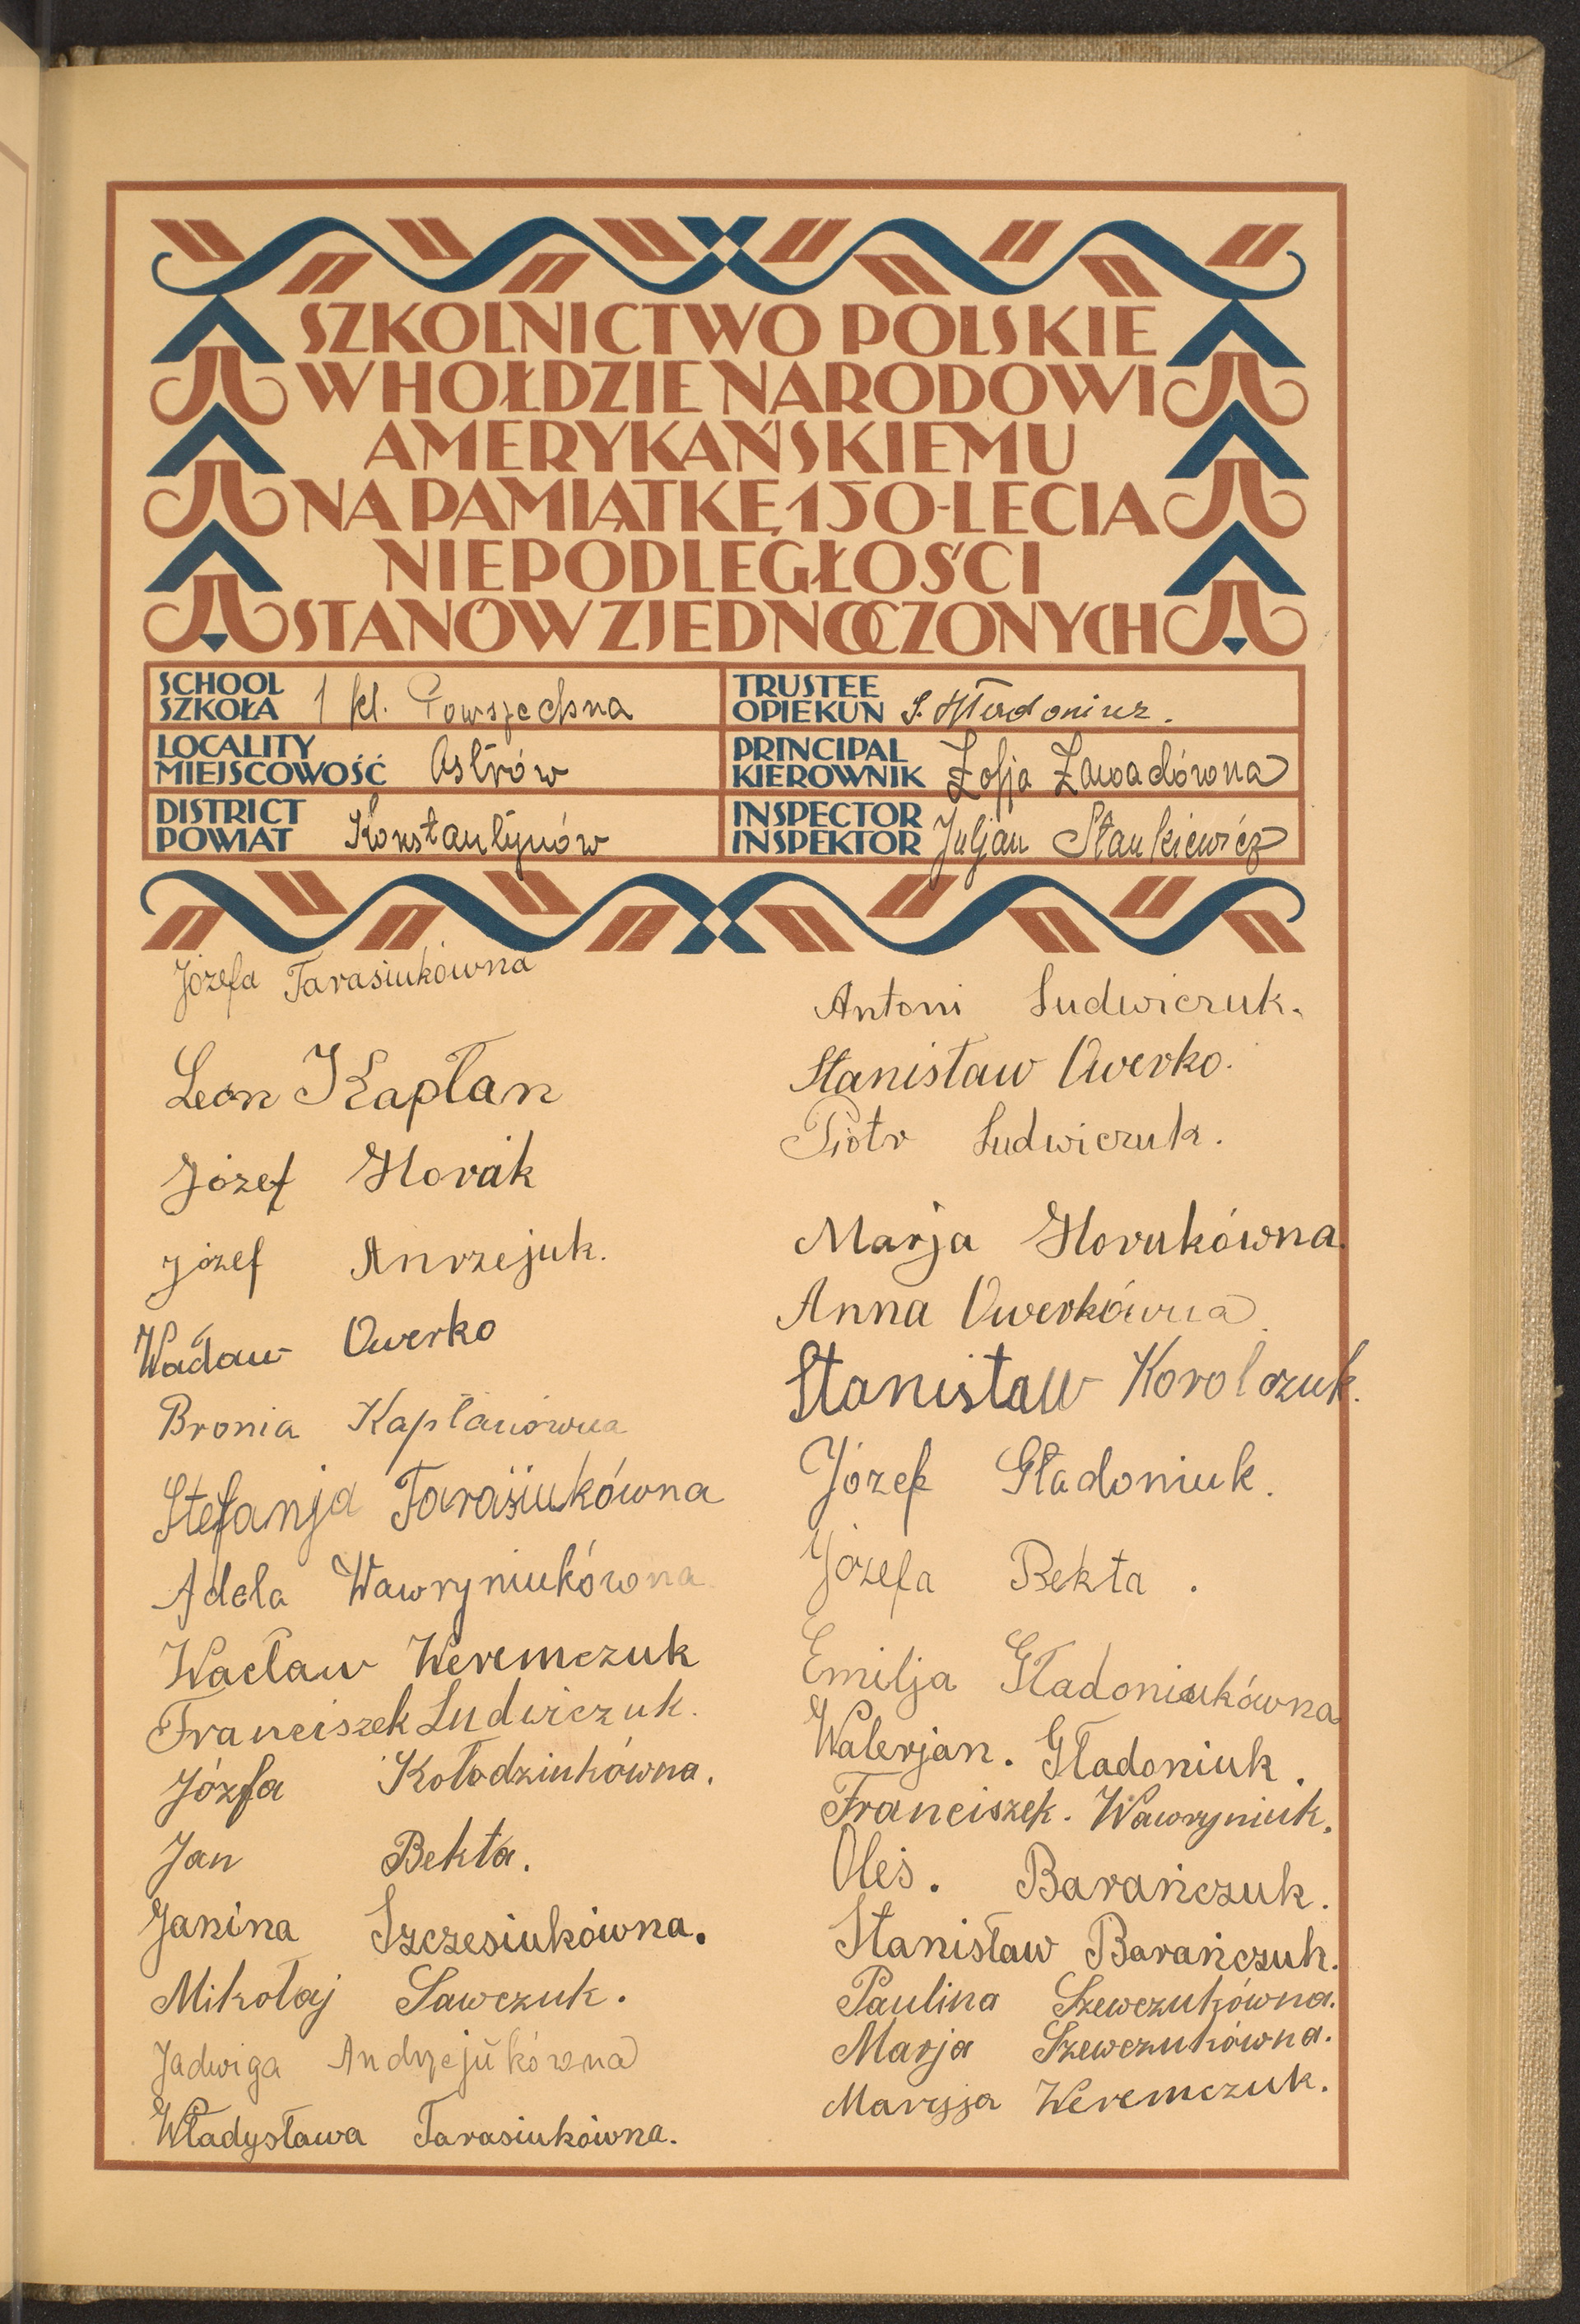 SZKOLNICTWO POLSKIE
W HOŁDZIE NARODOWI
AMERYKAŃSKIEMU
NA PAMIĄTKĘ 150-LECIA
NIEPODLEGŁOŚCI
STANÓW ZJEDNOCZONYCH
SCHOOL
SZKOŁA 1 kl. Powszechna
TRUSTEE
OPIEKUN S.
LOCALITY
MIEJSCOWOŚĆ Ostrów
PRINCIPAL
KIEROWNIK Zofja Zawadówna
DISTRICT
POWIAT Konstantynów
INSPECTOR
INSPEKTOR Juljan Stankiewicz
Józefa Tarasiukówna
Leon Kapłan
Józef Horak
Józef Anrzejuk.
Wacław Owerko
Bronia Kapłanówna
Stefanja Tarasiukówna
Adela Wawryniukówna
Wacław Weremczuk
Franciszek Ludwiczuk.
Józfa Kołodziukówna.
Jan Bekta.
Janina Szczesiukówna.
Mikołaj Sawczuk.
Jadwiga Andrzejukówna
Władysława Tarasiukówna.
Antoni Ludwiczuk.
Stanisław Owerko.
Piotr Ludwiczuk.
Marja Horukówna.
Anna Owerkówna.
Stanisław Korolczuk.
Józef Gładoniuk.
Józefa Bekta.
Emilja Gładoniukówna
Walerjan. Gładoniuk.
Franciszek. Wawryniuk.
Oleś. Barańczuk.
Stanisław Barańczuk.
Paulina Szewczukówna.
Marja Szewczukówna.
Maryja Weremczuk.